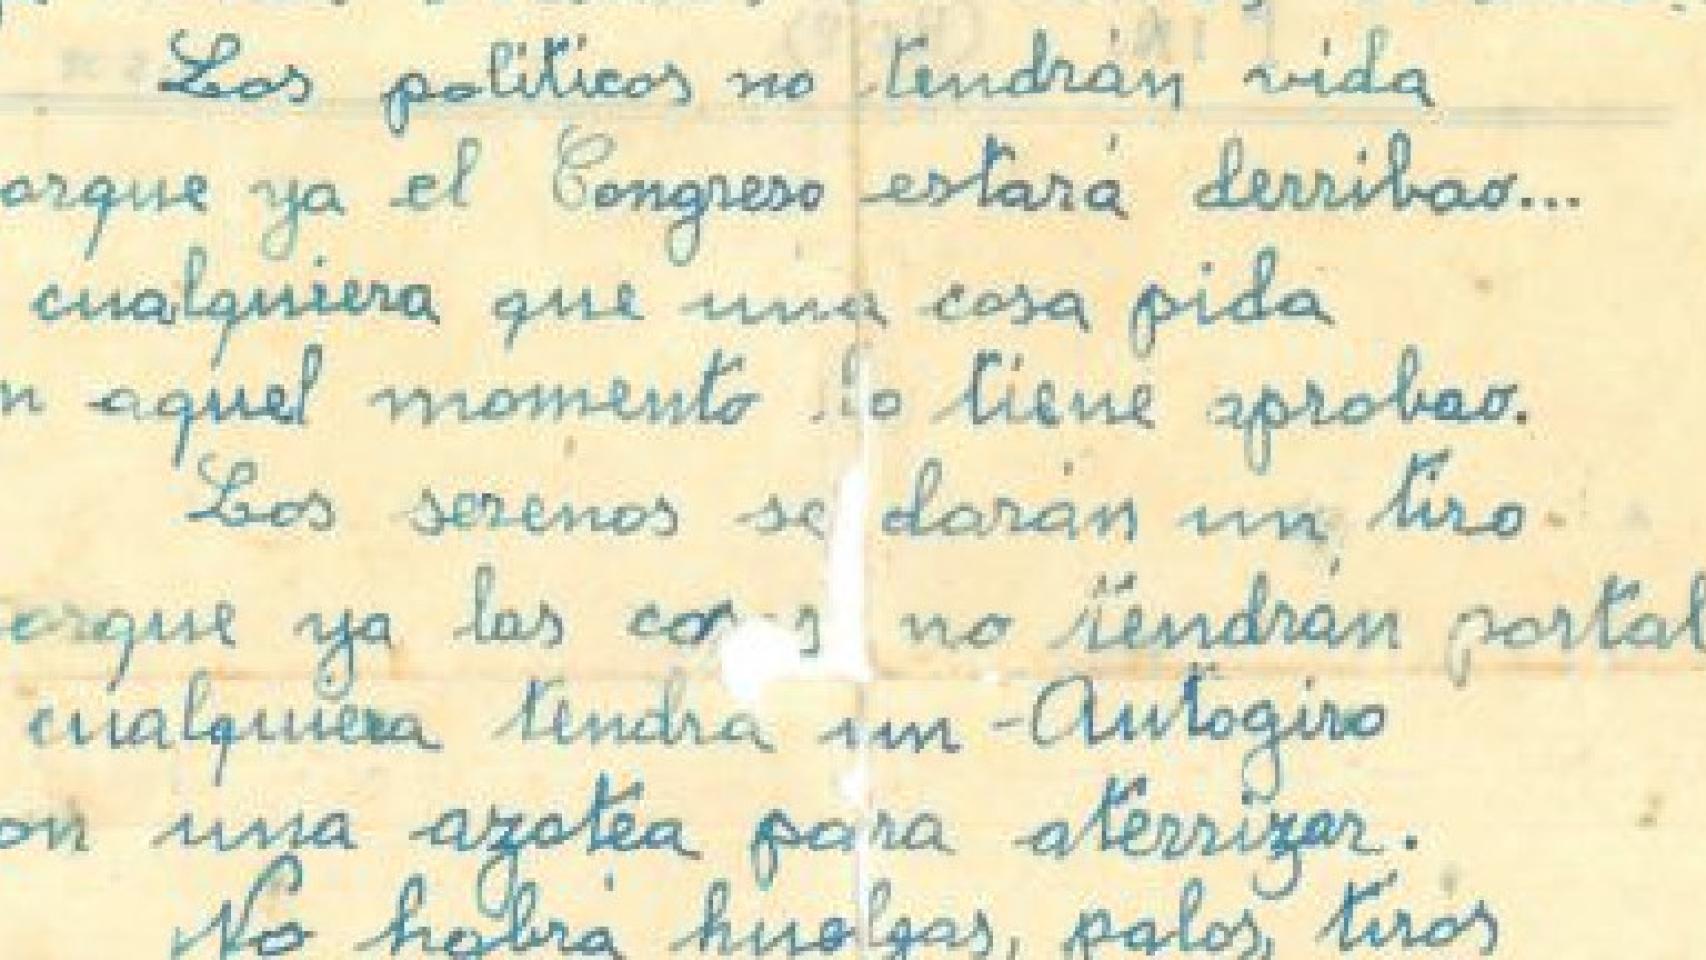 Los políticos no tendrán vida
orque ya el Congreso estará derribao...
cualquiera que una cosa pida
n aquel momento lo tiene aprobao.
Los serenos se darán un tiro
orque ya las no tendrán portal
cualquiera tendra un Autogiro
on una azotea para aterrizar.
No habrá huelgas, palos, tiros